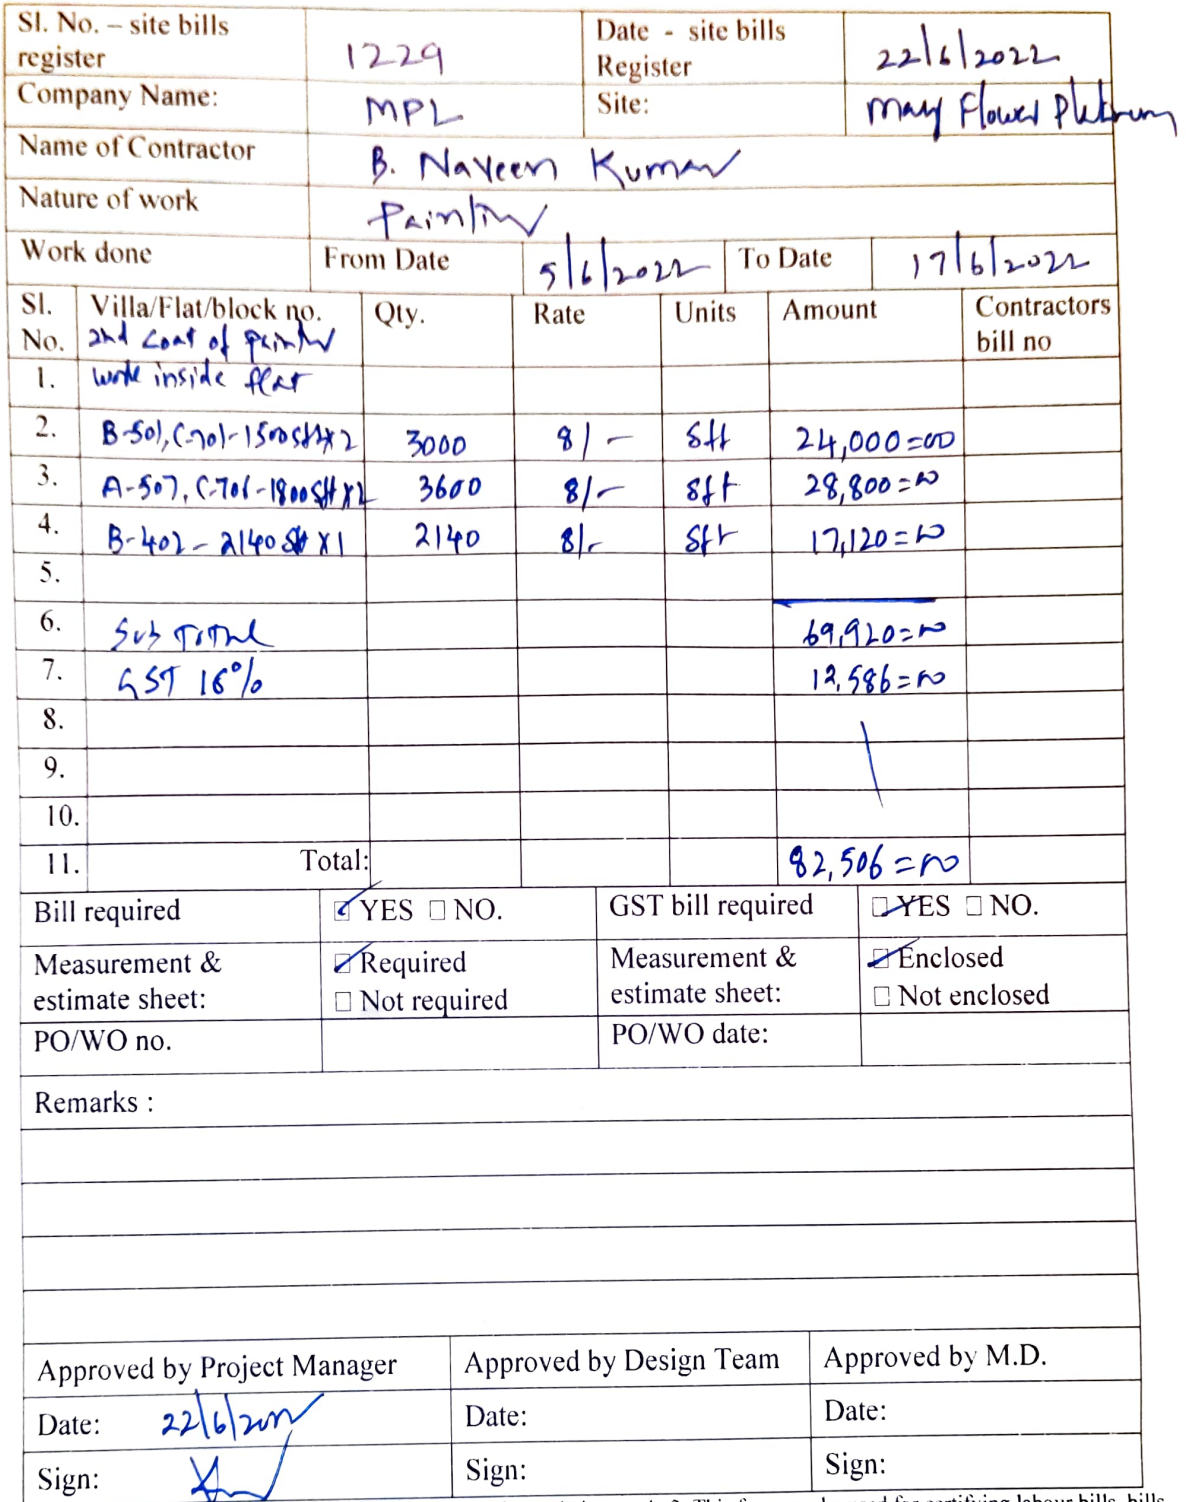 Sl. No. – site bills register 1229 Date - site bills Register 22/6/2022
Company Name: MPL Site: May Flower Platinum
Name of Contractor B. Naveen Kumar
Nature of work Painting
Work done From Date 5/6/2022 To Date 17/6/2022
Sl. No. Villa/Flat/block no. Qty. Rate Units Amount Contractors bill no
2nd coat of painting
1. work inside flat
2. B-501, C-701-1500sft x 2 3000 8/- sft 24,000=00
3. A-507, C-706-1800sft x 2 3600 8/- sft 28,800=00
4. B-402 - 2140 sft x 1 2140 8/- sft 17,120=00
5.
6. Sub Total 69,920=00
7. GST 18% 12,586=00
8.
9.
10.
11. Total: 82,506=00
Bill required YES NO. GST bill required YES NO.
Measurement & estimate sheet: Required Not required Measurement & estimate sheet: Enclosed Not enclosed
PO/WO no. PO/WO date:
Remarks :
Approved by Project Manager Approved by Design Team Approved by M.D.
Date: 22/6/2022 Date: Date:
Sign: Sign: Sign: